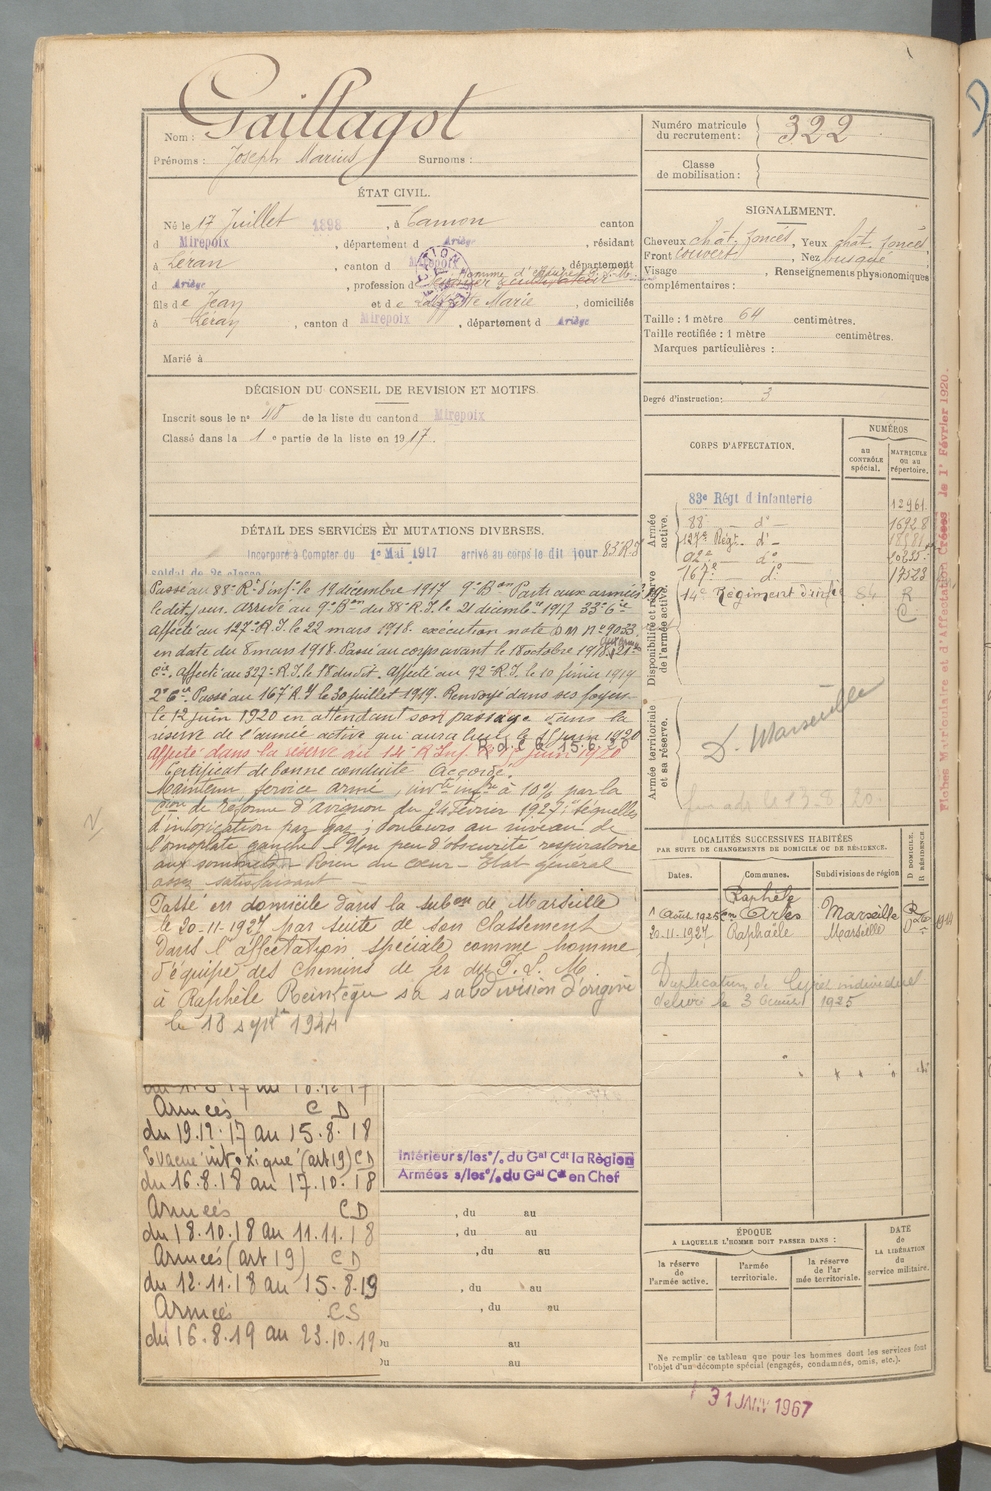 Nom : Gaillagot
Prénoms : Joseph Marius Surnoms :
ÉTAT CIVIL.
Né le 17 Juillet 1898, à Camon canton
d Mirepoix, département d Ariège, résidant
à Léran, canton d Mirepoix, département
d Ariège, profession d Homme d'équipe P. L. M.
fils de Jean et de Marie, domiciliés
à Léran, canton d Mirepoix, département d Ariège
Marié à
DÉCISION DU CONSEIL DE REVISION ET MOTIFS.
Inscrit sous le n° 40 de la liste du canton d Mirepoix
Classé dans la 1e partie de la liste en 1917.
DÉTAIL DES SERVICES ET MUTATIONS DIVERSES.
Incorporé à Compter du 1er Mai 1917 arrivé au corps le dit jour 83e R.I
soldat de 2e classe
Passé au 88e Rt d'inf. le 19 décembre 1917 9e Bon Parti aux armées
le dit jour. arrivé au 9e Bon du 88e R.I. le 21 décembre 1917 33e Cie
affecté au 127e R.I. le 22 mars 1918. exécution note DM N° 9033
en date du 8 mars 1918. Passé au corps avant le 18 octobre 1918. 21e
Cie. affecté au 327e R.I. le 18 du dit. affecté au 92e R.I. le 10 février 1919
2e Cie. Passé au 167e R.I. le 30 juillet 1919. Renvoyé dans ses foyers
le 12 juin 1920 en attendant son passage dans la
réserve de l'armée active qui aura lieu le 15 juin 1920
affecté dans la réserve au 14e R. Inf. juin 1920
Certificat de bonne conduite Accordé.
Maintenu service armé, invte infre à 10% par la
Cion de réforme d'Avignon du 24 Février 1927 : séquelles
d'intoxication par gaz ; douleurs au niveau de
l'omoplate gauche. Un peu d'obscurité respiratoire
aux sommets - Rien du cœur - Etat général
assez satisfaisant
Passé en domicile dans la subon de Marseille
le 20-11-1927 par suite de son Classement
dans l'affectation spéciale comme homme
d'équipe des Chemins de fer du P. L. M.
à Raphèle Réintègre sa subdivision d'origine
le 18 septbre 1944
Armées C D
du 19.12.17 au 15.8.18
Evacué intoxiqué (art 19) C D
du 16.8.18 au 17.10.18
Armées C D
du 18.10.18 au 11.11.18
Armées (art 19) C D
du 12.11.18 au 15.8.19
Armées C S
du 16.8.19 au 23.10.19
Intérieur s/les o/. du Gal Cdt la Région
Armées s/les o/. du Gal Cdt en Chef
, du au
, du au
, du au
, du au
, du au
Du au
Du au
Numéro matricule du recrutement : 322
Classe de mobilisation :
SIGNALEMENT.
Cheveux chât. foncés, Yeux chât. foncés
Front couvert, Nez busqué
Visage , Renseignements physionomiques
complémentaires :
Taille : 1 mètre 64 centimètres.
Taille rectifiée : 1 mètre centimètres.
Marques particulières :
Degré d'instruction : 3
CORPS D'AFFECTATION.
NUMÉROS
au CONTRÔLE spécial.
MATRICULE ou au répertoire.
Armée active.
83e Régt d'Infanterie 12961
88 — d° — 16928
127e Régt. d° —
92e d°
167e d° 17523
Disponibilité et réserve de l'armée active.
14e Régiment d'infie 84 R
C
Armée territoriale et sa réserve.
D. Marseille
13.8.20
LOCALITÉS SUCCESSIVES HABITÉES
PAR SUITE DE CHANGEMENTS DE DOMICILE OU DE RÉSIDENCE.
Dates. Communes. Subdivisions de région
D DOMICILE. R RÉSIDENCE
Raphèle
1 Août 1925 Cne Arles Marseille R
20-11-1927 Raphaële Marseille
Duplication de livret individuel
délivré le 3 août 1925
ÉPOQUE
A LAQUELLE L'HOMME DOIT PASSER DANS :
la réserve de l'armée active.
l'armée territoriale.
la réserve de l'armée territoriale.
DATE de LA LIBÉRATION du service militaire.
Ne remplir ce tableau que pour les hommes dont les services font
l'objet d'un décompte spécial (engagés, condamnés, omis, etc.).
31 JANV 1967
Fiches Matriculaire et d'Affectation Créées le 1er Février 1920.